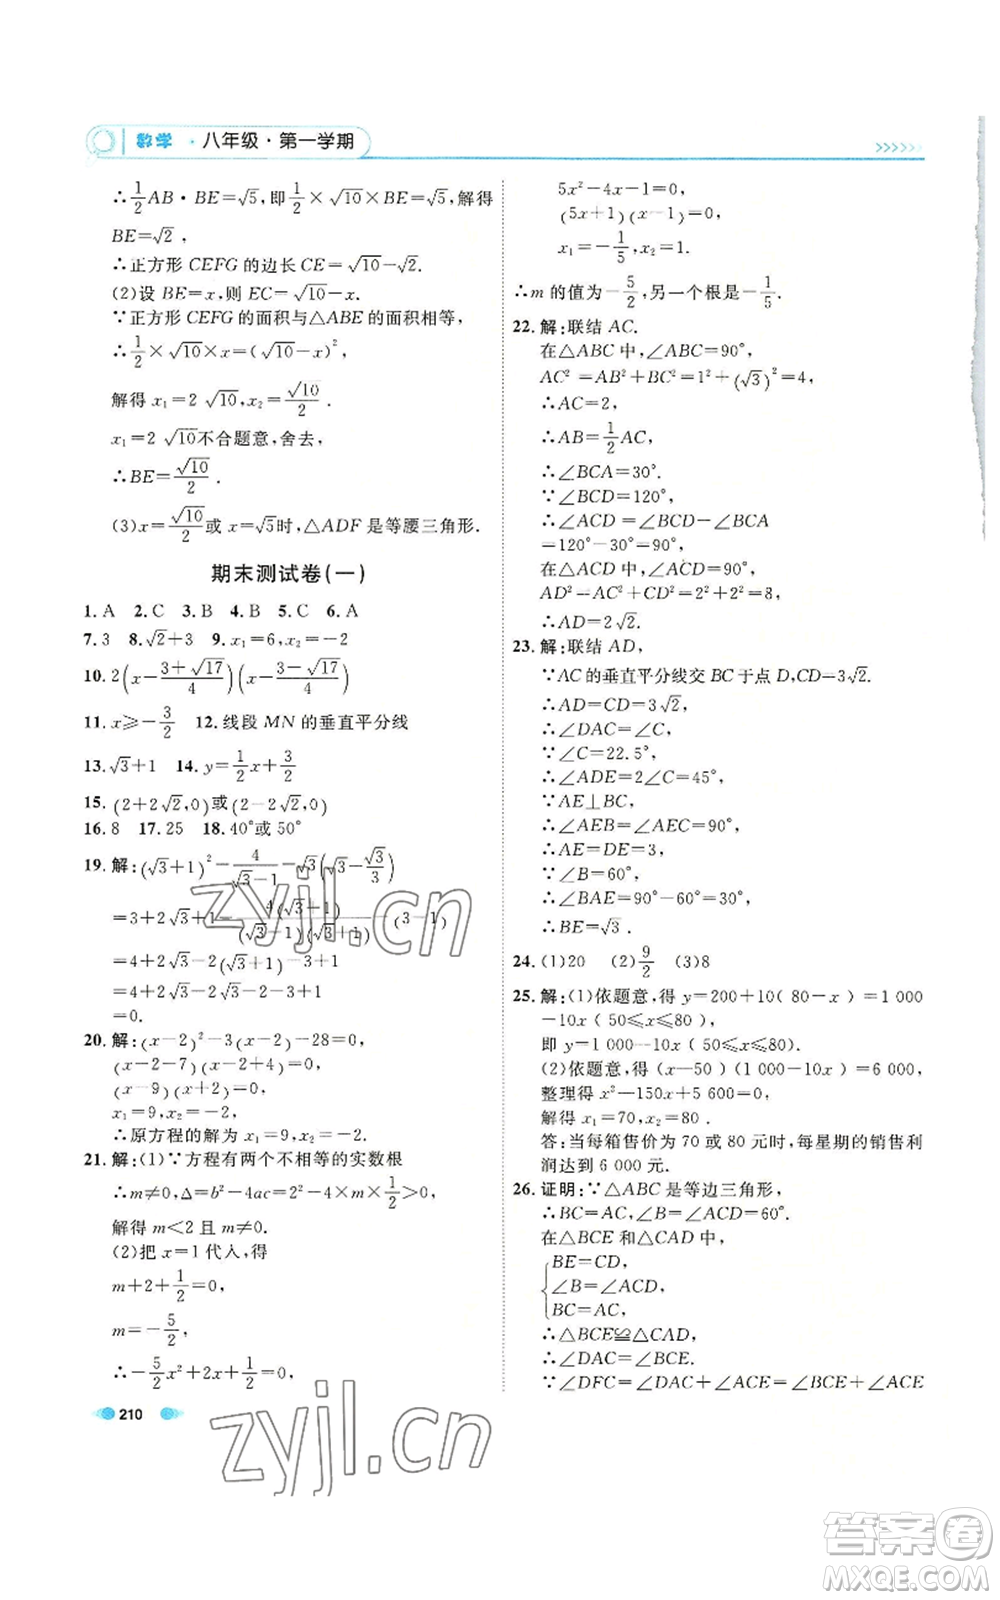 数学 · 八年级 · 第一学期
∴1/2 AB·BE=√5,即1/2×√10×BE=√5,解得
BE=√2,
∴正方形 CEFG 的边长 CE=√10-√2.
(2)设 BE=x,则 EC=√10-x.
∵正方形 CEFG 的面积与△ABE 的面积相等,
∴1/2×√10×x=(√10-x)²,
解得 x₁=2√10,x₂=√10/2.
x₁=2√10不合题意,舍去,
∴BE=√10/2.
(3)x=√10/2或 x=√5时,△ADF 是等腰三角形.
期末测试卷(一)
1. A 2. C 3. B 4. B 5. C 6. A
7. 3 8. √2+3 9. x₁=6,x₂=-2
10. 2(x-(3+√17)/4)(x-(3-√17)/4)
11. x≥-3/2 12. 线段 MN 的垂直平分线
13. √3+1 14. y=1/2x+3/2
15. (2+2√2,0)或(2-2√2,0)
16. 8 17. 25 18. 40°或 50°
19. 解:(√3+1)²-4/(√3-1)-√3(√3-√3/3)
=3+2√3+1-4(√3+1)/((√3-1)(√3+1))-(3-1)
=4+2√3-2(√3+1)-2
=4+2√3-2√3-2-2
=0.
20. 解:(x-2)²-3(x-2)-28=0,
(x-2-7)(x-2+4)=0,
(x-9)(x+2)=0,
x₁=9,x₂=-2,
∴原方程的解为 x₁=9,x₂=-2.
21. 解:(1)∵方程有两个不相等的实数根
∴m≠0,Δ=b²-4ac=2²-4×m×1/2>0,
解得 m<2 且 m≠0.
(2)把 x=1 代人,得
m+2+1/2=0,
m=-5/2,
∴-5/2x²+2x+1/2=0,
5x²-4x-1=0,
(5x+1)(x-1)=0,
x₁=-1/5,x₂=1.
∴m 的值为-5/2,另一个根是-1/5.
22. 解:联结 AC.
在△ABC 中,∠ABC=90°,
AC²=AB²+BC²=1²+(√3)²=4,
∴AC=2,
∴AB=1/2AC,
∴∠BCA=30°.
∵∠BCD=120°,
∴∠ACD=∠BCD-∠BCA
=120°-30°=90°,
在△ACD 中,∠ACD=90°,
AD²=AC²+CD²=2²+2²=8,
∴AD=2√2.
23. 解:联结 AD,
∵AC的垂直平分线交 BC于点 D,CD=3√2.
∴AD=CD=3√2,
∴∠DAC=∠C,
∵∠C=22.5°,
∴∠ADE=2∠C=45°,
∵AE⊥BC,
∴∠AEB=∠AEC=90°,
∴AE=DE=3,
∵∠B=60°,
∴∠BAE=90°-60°=30°,
∴BE=√3.
24. (1)20 (2)9/2 (3)8
25. 解:(1)依题意,得 y=200+10(80-x)=1 000
-10x(50≤x≤80),
即 y=1 000-10x(50≤x≤80).
(2)依题意,得(x-50)(1 000-10x)=6 000,
整理得 x²-150x+5 600=0,
解得 x₁=70,x₂=80.
答:当每箱售价为 70 或 80 元时,每星期的销售利
润达到 6 000 元.
26. 证明:∵△ABC 是等边三角形,
∴BC=AC,∠B=∠ACD=60°.
在△BCE 和△CAD 中,
BE=CD,
∠B=∠ACD,
BC=AC,
∴△BCE≌△CAD,
∴∠DAC=∠BCE.
∵∠DFC=∠DAC+∠ACE=∠BCE+∠ACE
210
zyjl.cn
zyjl.cn
答案卷
MXQE.COM